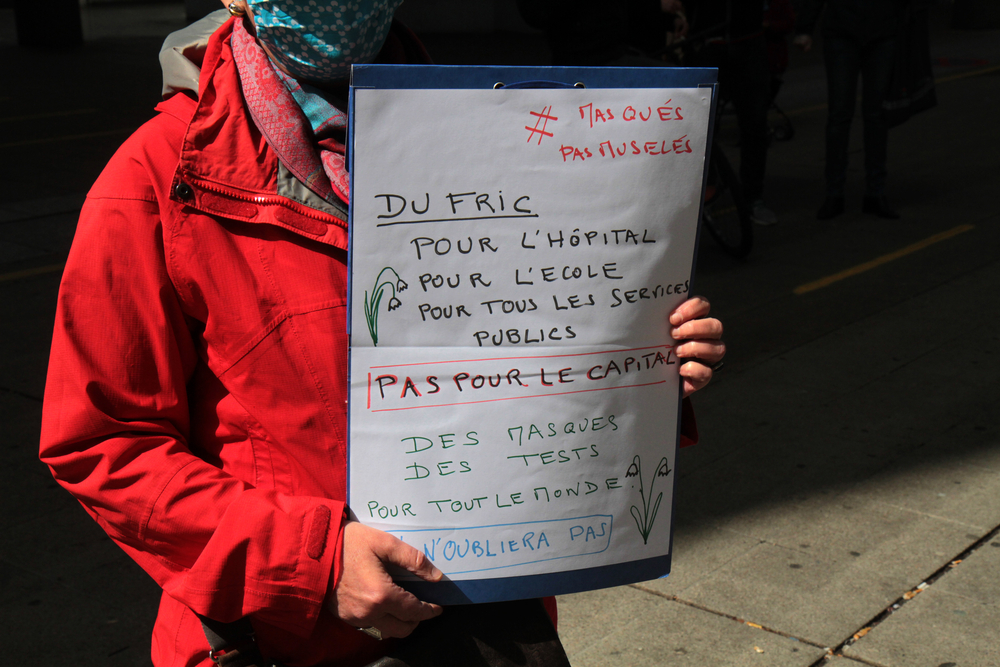 # MASQUÉS
PAS MUSELÉS
DU FRIC
POUR L'HÔPITAL
POUR L'ECOLE
POUR TOUS LES SERVICES
PUBLICS
PAS POUR LE CAPITAL
DES MASQUES
DES TESTS
POUR TOUT LE MONDE.
N'OUBLIERA PAS